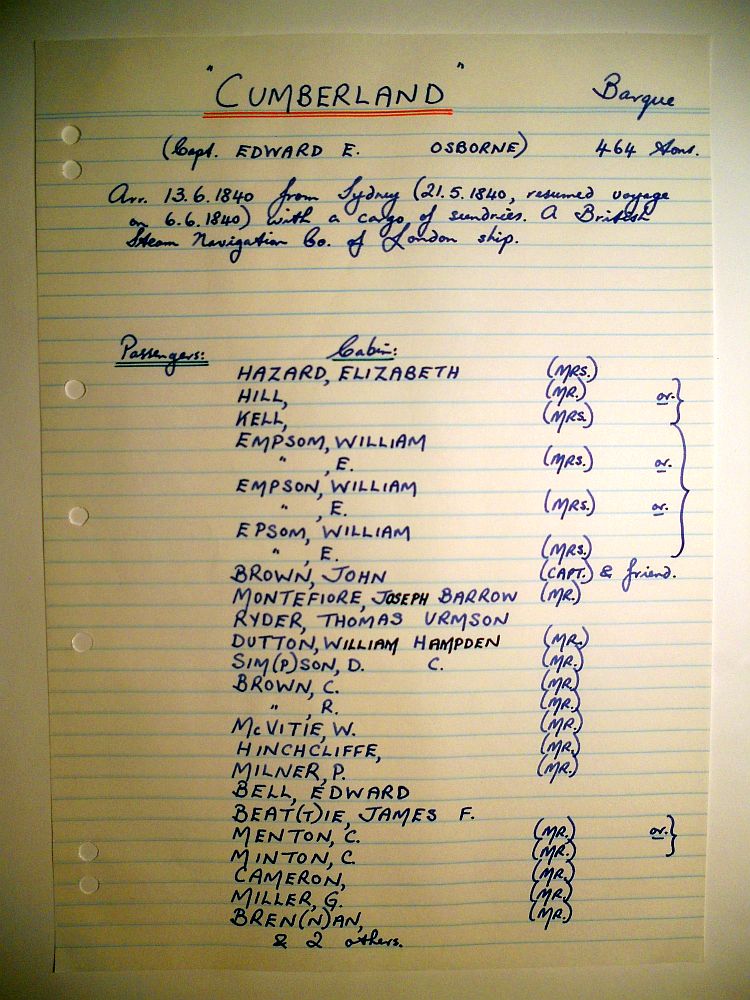 "CUMBERLAND" Barque
(Capt. EDWARD E. OSBORNE) 464 tons.
Arr. 13.6.1840 from Sydney (21.5.1840, resumed voyage
on 6.6.1840) with a cargo of sundries. A British
Steam Navigation Co. of London ship.
Passengers: Cabin:
HAZARD, ELIZABETH (MRS.)
HILL, (MR.) or.
KELL, (MRS.)
EMPSOM, WILLIAM
" , E. (MRS.) or.
EMPSON, WILLIAM
" , E. (MRS.) or.
EPSOM, WILLIAM
" , E. (MRS.)
BROWN, JOHN (CAPT.) & friend.
MONTEFIORE, JOSEPH BARROW (MR.)
RYDER, THOMAS URMSON
DUTTON, WILLIAM HAMPDEN (MR.)
SIM(P)SON, D. C. (MR.)
BROWN, C. (MR.)
" , R. (MR.)
McVITIE, W. (MR.)
HINCHCLIFFE, (MR.)
MILNER, P. (MR.)
BELL, EDWARD
BEAT(T)IE, JAMES F.
MENTON, C. (MR.) or.
MINTON, C. (MR.)
CAMERON, (MR.)
MILLER, G. (MR.)
BREN(N)AN, (MR.)
& 2 others.